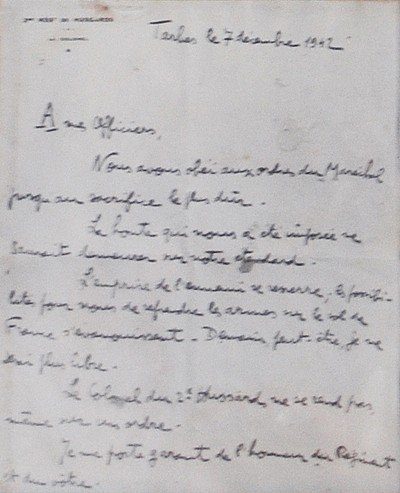 2me RÉGt DE HUSSARDS
LE COLONEL
Tarbes le 7 décembre 1942
A mes Officiers,
Nous avons obéi aux ordres du Maréchal
jusqu'au sacrifice le plus dur.
La honte qui nous a été imposée ne
saurait demeurer sur notre étendard.
L'emprise de l'ennemi se resserre; les possibi-
lités pour nous de reprendre les armes sur le sol de
France s'évanouissent. Demain, peut-être, je ne
serai plus libre.
Le Colonel du 2e Hussards ne se rend pas,
même sur un ordre.
Je me porte garant de l'honneur du Régiment
et du vôtre.